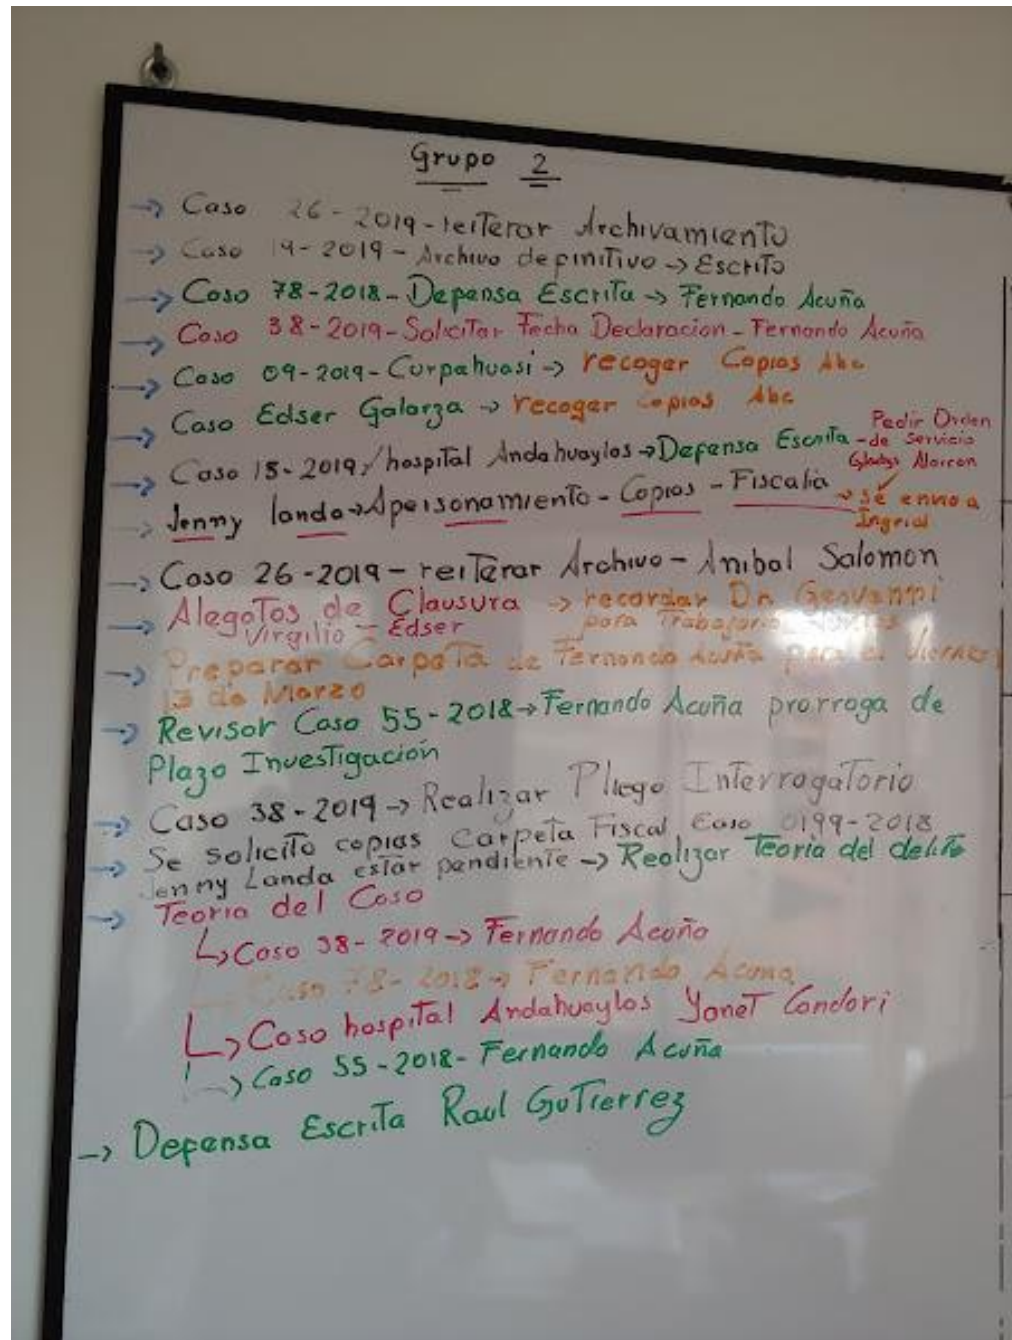 Grupo 2
→ Caso 26-2019-reiterar Archivamiento
→ Caso 14-2019-Archivo definitivo → Escrito
→ Caso 78-2018-Defensa Escrita → Fernando Acuña
→ Caso 38-2019-Solicitar Fecha Declaracion-Fernando Acuña
→ Caso 09-2019-Curpahuasi → recoger Copias Abc
→ Caso Edser Galarza → recoger Copias Abc
→ Caso 15-2019/hospital Andahuaylas → Defensa Escrita - Pedir Orden
de Servicio
Gladys Alarcon
→ Jenny landa → Apersonamiento - Copias - Fiscalia → se envio a
Ingrid
→ Caso 26-2019-reiterar Archivo-Anibal Salomon
→ Alegatos de Clausura → recordar Dr. Geovanni
Virgilio - Edser para Trabajarlo
→ Preparar Carpeta de Fernando Acuña para el viernes
13 de Marzo
→ Revisar Caso 55-2018 → Fernando Acuña prorroga de
Plazo Investigación
→ Caso 38-2019 → Realizar Pliego Interrogatorio
→ Se solicito copias Carpeta Fiscal Caso 0199-2018
Jenny Landa estar pendiente → Realizar Teoria del delito
→ Teoria del Caso
↳ Caso 38-2019 → Fernando Acuña
Caso 78-2018 → Fernando Acuña
↳ Caso hospital Andahuaylas Yanet Condori
↳ Caso 55-2018-Fernando Acuña
→ Defensa Escrita Raul Gutierrez